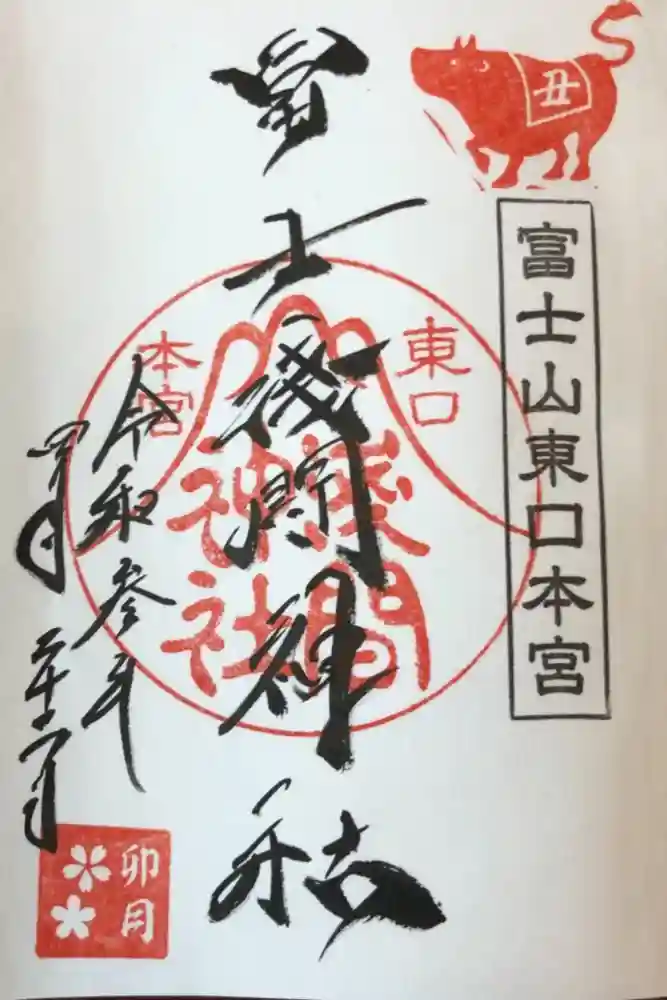 丑
富士山東口本宮
富士浅間神社
東口
本宮
浅間
神社
令和参年
四月二十一日
卯月